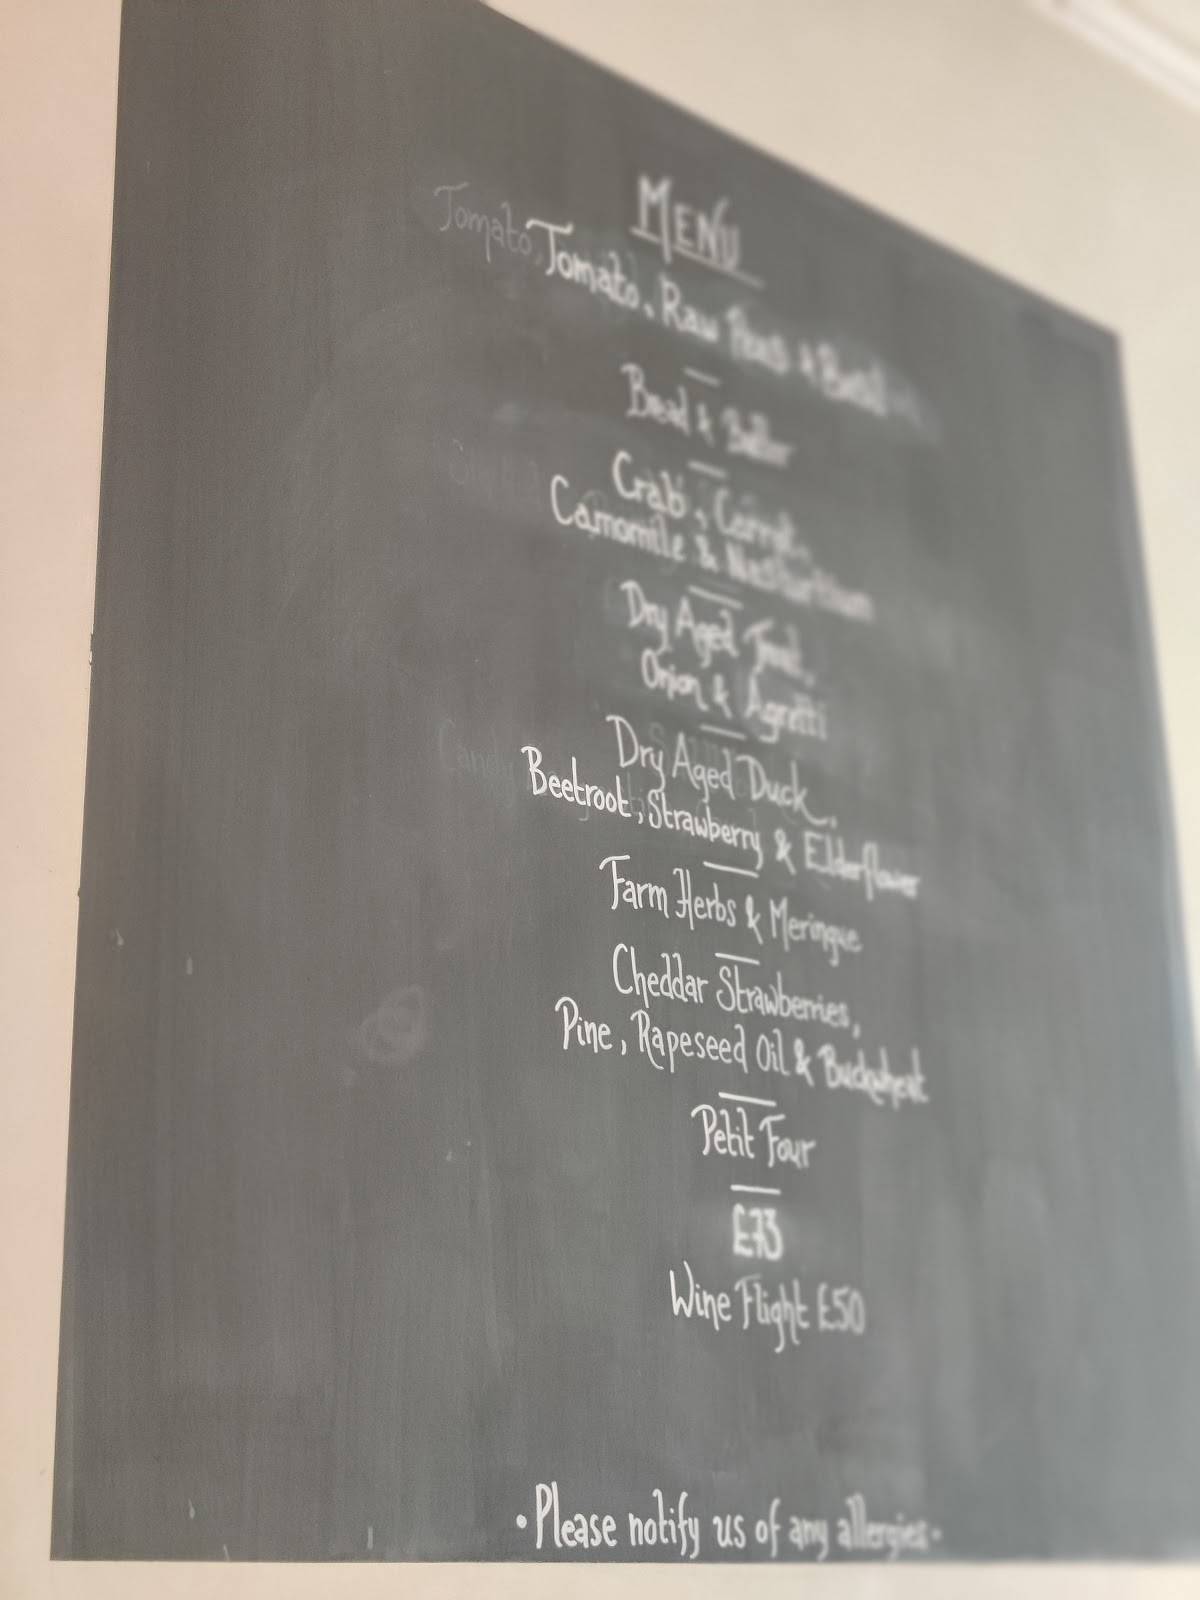 MENU
Tomato, Tomato, Raw Peas & Basil
Bread & Butter
Crab, Carrot,
Camomile & Nasturtium
Dry Aged
Onion & Agretti
Dry Aged Duck,
Beetroot, Strawberry & Elderflower
Farm Herbs & Meringue
Cheddar Strawberries,
Pine, Rapeseed Oil & Buckwheat
Petit Four
£73
Wine Flight £50
• Please notify us of any allergies •